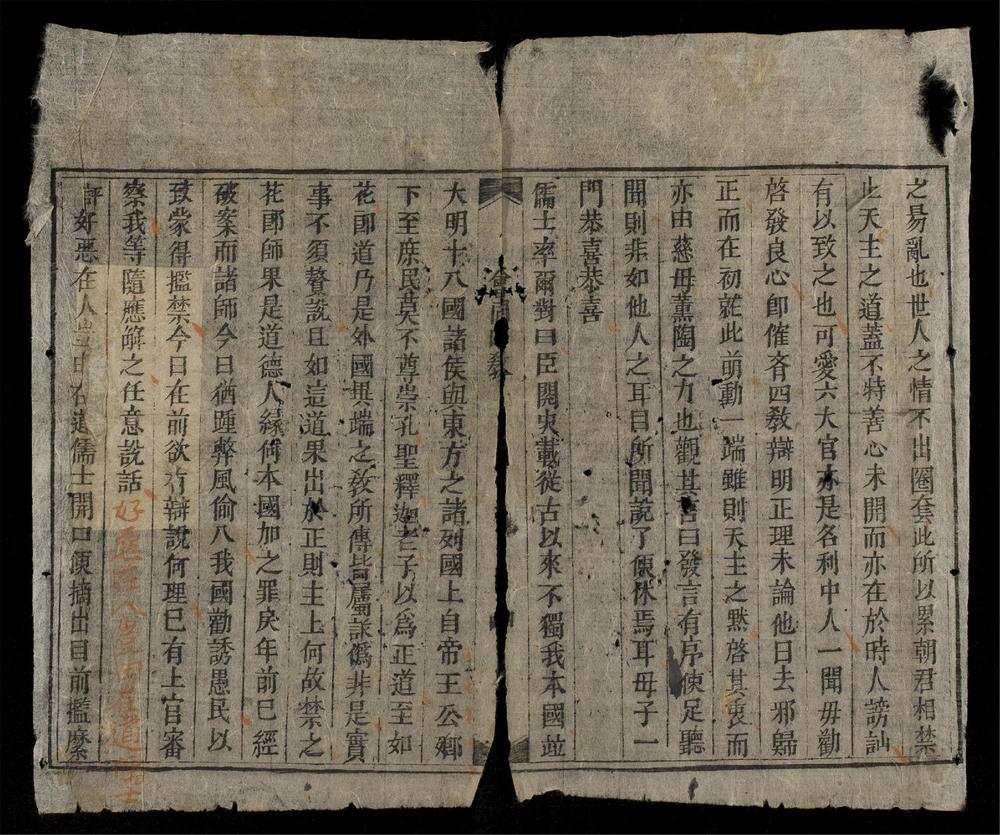 之易亂也世人之情不出圈套此所以累朝君相禁
此天主之道蓋不特善心未開而亦在於時人謗訕
有以致之也可愛六大官亦是各利中人一聞毋勸
啓發良心卽催齊四敎辯明正理未論他日去邪歸
正而在初䧺此萌動一端雖則天主之黙啓其衷而
亦由慈母薰陶之力也觀其言曰發言有序使足聽
聞則非如他人之耳目所聞說了便休焉耳母子一
門恭喜恭喜
儒士率爾對曰臣閱史載從古以來不獨我本國並
會同四敎
大明十八國諸侯與東方之諸列國上自帝王公卿
下至庶民莫不尊崇孔聖釋迦老子以爲正道至如
花郎道乃是外國異端之敎所傳皆屬謬僞非是實
事不須贅說且如這道果出於正則主上何故禁之
花郎師果是道德人緣何本國加之罪戾年前已經
破案而諸師今日猶踵弊風偷入我國勸誘愚民以
致蒙得擥禁今日在前欲有辯說何理已有上官審
察我等隨應觧之任意說話
評好惡在人豈由在道儒士開口便摘出目前擥縻
好惡在人豈由在道儒士